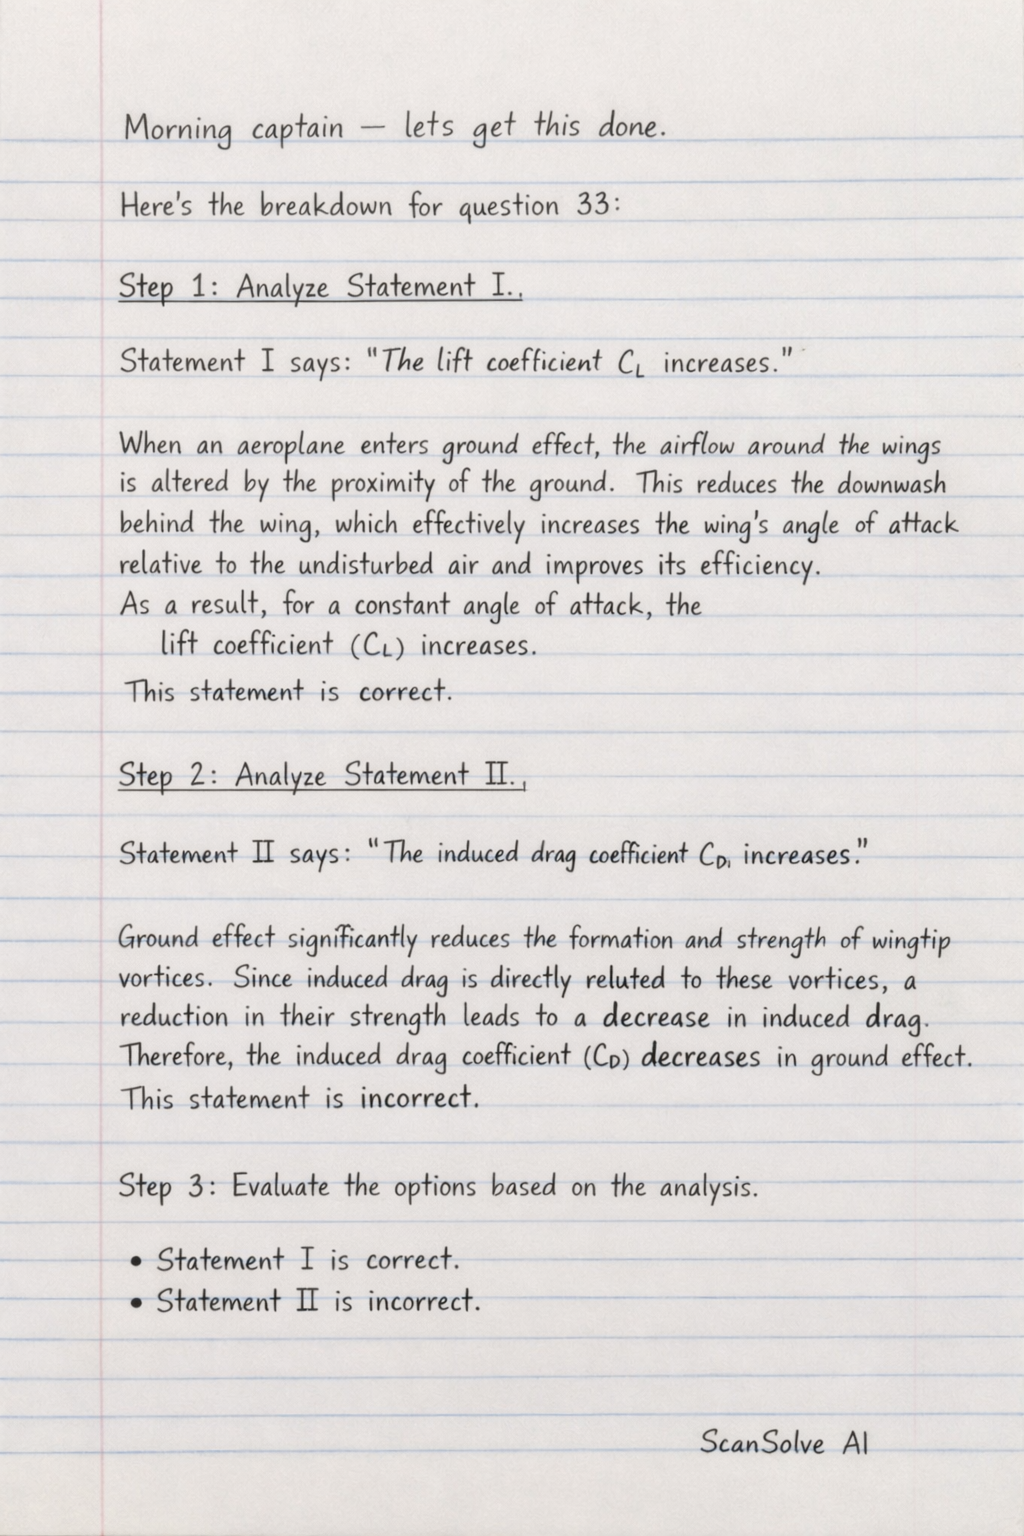 Morning captain — lets get this done.
Here's the breakdown for question 33:
Step 1: Analyze Statement I.,
Statement I says: "The lift coefficient C_L increases."
When an aeroplane enters ground effect, the airflow around the wings
is altered by the proximity of the ground. This reduces the downwash
behind the wing, which effectively increases the wing's angle of attack
relative to the undisturbed air and improves its efficiency.
As a result, for a constant angle of attack, the
lift coefficient (C_L) increases.
This statement is correct.
Step 2: Analyze Statement II.,
Statement II says: "The induced drag coefficient C_Di increases."
Ground effect significantly reduces the formation and strength of wingtip
vortices. Since induced drag is directly reluted to these vortices, a
reduction in their strength leads to a decrease in induced drag.
Therefore, the induced drag coefficient (C_D) decreases in ground effect.
This statement is incorrect.
Step 3: Evaluate the options based on the analysis.
• Statement I is correct.
• Statement II is incorrect.
ScanSolve AI